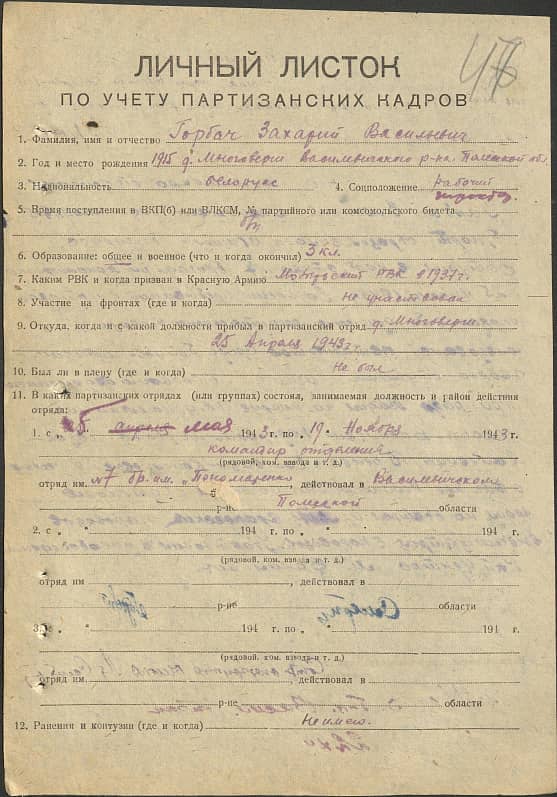 47
ЛИЧНЫЙ ЛИСТОК
ПО УЧЕТУ ПАРТИЗАНСКИХ КАДРОВ
1. Фамилия, имя и отчество Горбач Захарий Васильевич
2. Год и место рождения 1915 д. Многоверш Василевичского р-на Полесской обл.
3. Национальность белорус 4. Соцположение рабочий
5. Время поступления в ВКП(б) или ВЛКСМ, № партийного или комсомольского билета
б/п
6. Образование: общее и военное (что и когда окончил) 3 кл.
7. Каким РВК и когда призван в Красную Армию РВК в 1937 г.
8. Участие на фронтах (где и когда) не участвовал
9. Откуда, когда и с какой должности прибыл в партизанский отряд д. Многоверш
25 Апреля 1943 г.
10. Был ли в плену (где и когда) Не был
11. В каких партизанских отрядах (или группах) состоял, занимаемая должность и район действия
отряда:
1. с „ 5 апреля мая 1943 г. по „19 Ноября 1943 г.
командир отделения
(рядовой, ком. взвода и т. д.)
отряд им. №7 бр. им. „Пономаренко", действовал в Василевичском
р-не Полесской
2. с „ " 194 г. по „ " 194 г.
(рядовой, ком. взвода и т. д.)
отряд им. , действовал в
р-не области
3. „ " 194 г. по „ " 194 г.
(рядовой, ком. взвода и т. д.)
отряд им. , действовал в
р-не области
12. Ранения и контузии (где и когда) Не имею.